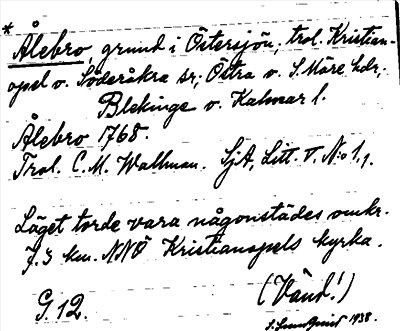 * Ålebro, grund i Östersjön, trol. Kristian-
opel o. Söderåkra sr; Östra o. S. Möre hdr,
Blekinge o. Kalmar l.
Ålebro 1768.
Trol. C. M. Wallman. SjA, Litt. V. No 1,1.
Läget torde vara någonstädes omkr.
7.3 km. NNÖ Kristianopels kyrka.
G. 12. (Vänd!)
1938.